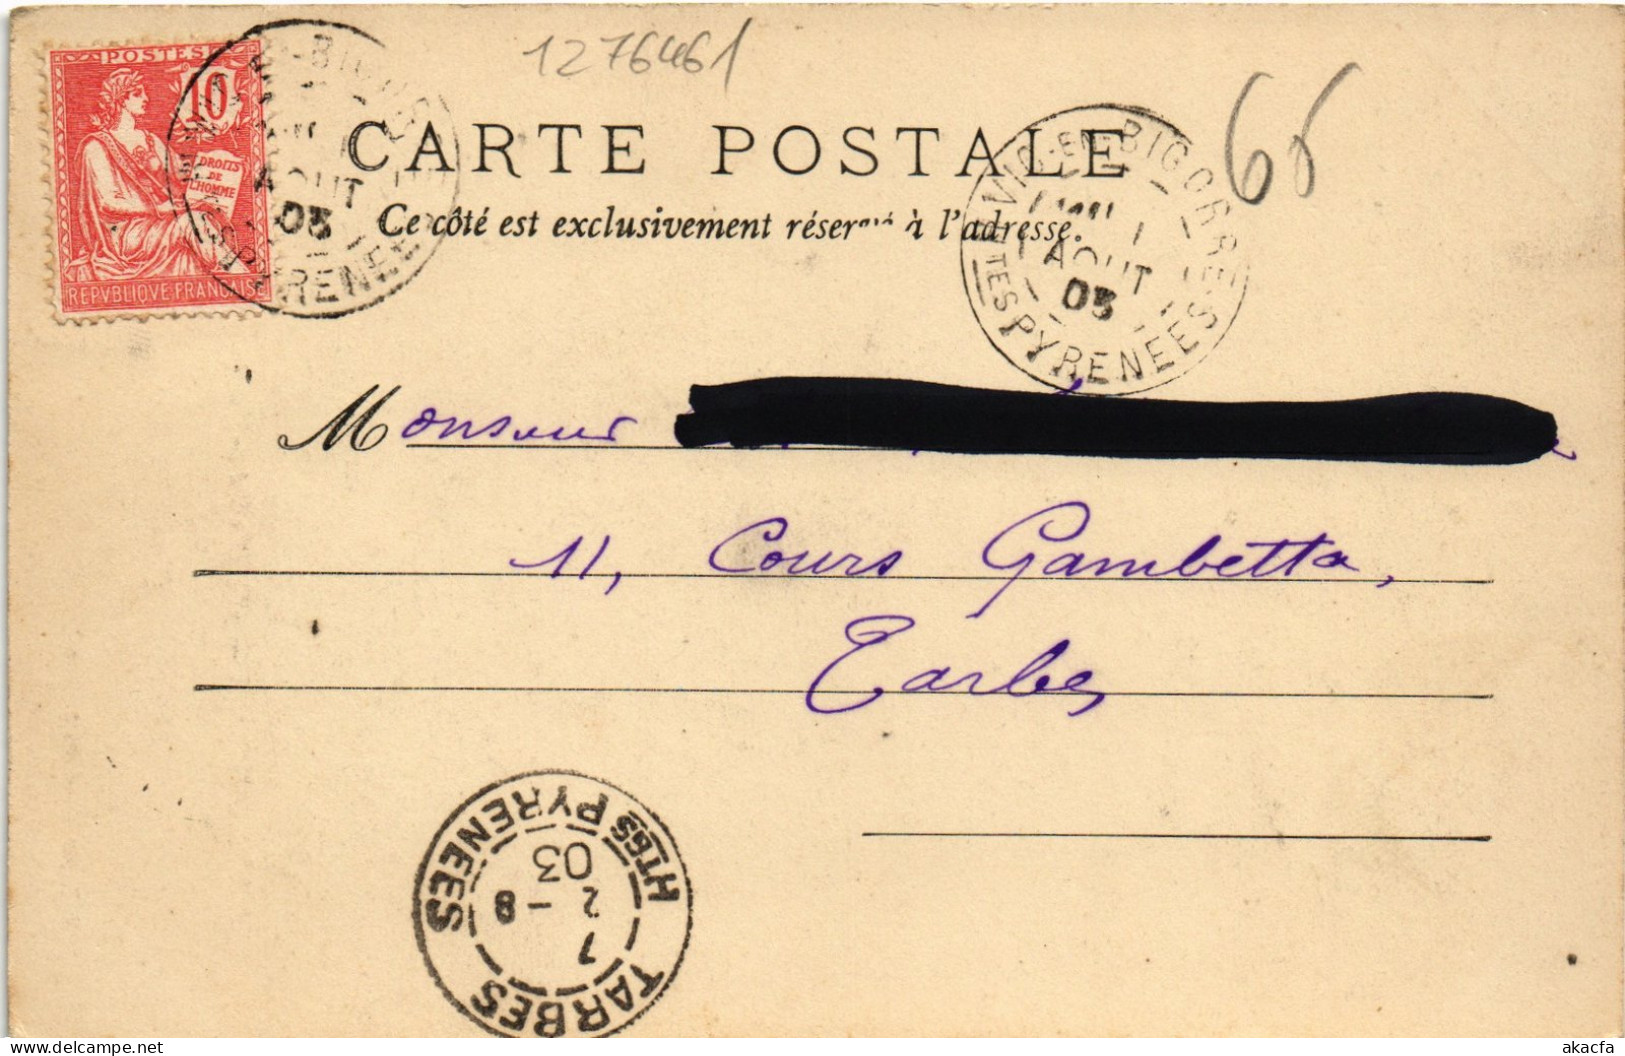 1276461
65
POSTES
10
DROITS
DE
L'HOMME
REPVBLIQVE FRANÇAISE
AOUT
03
PYRENEES
CARTE POSTALE
Ce côté est exclusivement réservé à l'adresse.
VIC-EN-BIGORRE
AOUT
03
HTES PYRENEES
Monsieur
11, Cours Gambetta,
Tarbes
TARBES
1
2 - 8
03
HTES PYRENEES
akacfa